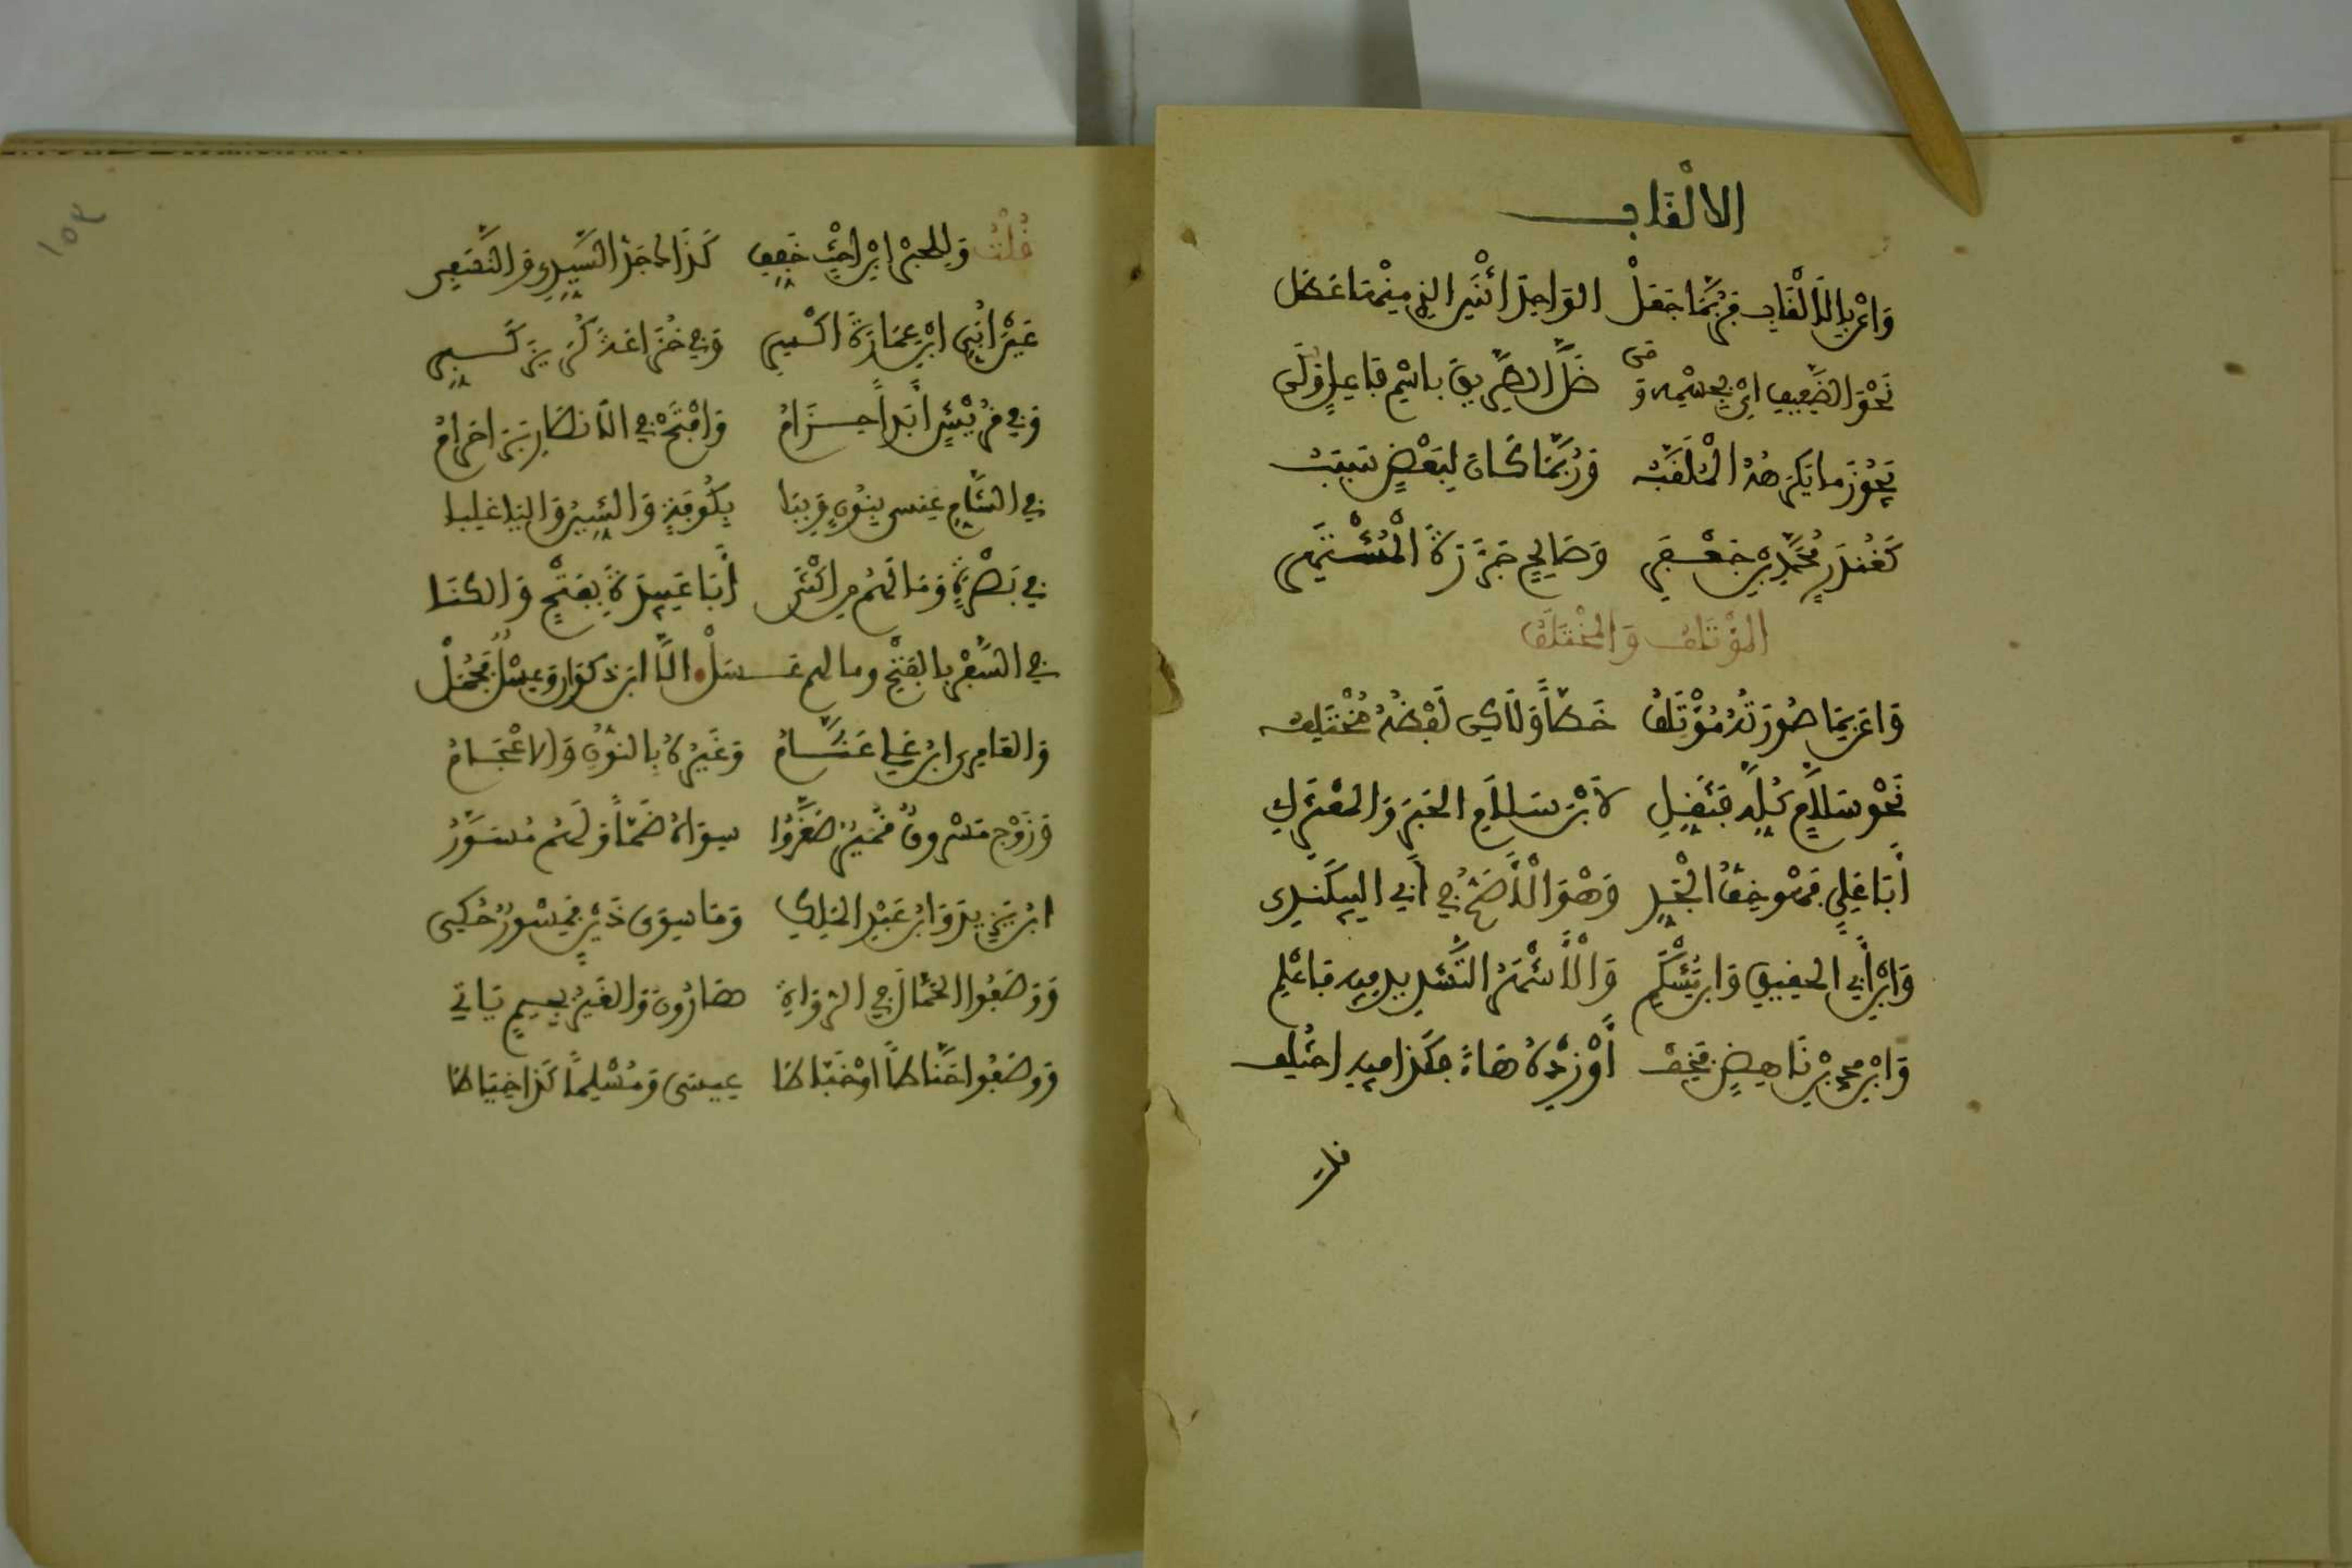 الالْقَاب
وَاعْنِ بِالَالْقَابِ فَرُبَّمَا جَعَلْ الوَاحِدَ اثْنَيْنِ الذِي مِنْهَا عَطَلْ
نَحْوُ الضَّعِيفِ ايْ بِجِسْمِهِ وَمَنْ ضَلَّ الطَّرِيقَ بِاسْمِ فَاعِلٍ وَلَنْ
يَجُوزَ مَا يَكْرَهُهُ الْمُلَقَّبُ وَرُبَّمَا كَانَ لِبَعْضٍ سَبَبُ
كَغُنْدَرٍ مُحَمَّدِ بْنِ جَعْفَرِ وَصَالِحٍ جَزَرَةَ الْمُشْتَهِرِ
المُؤْتَلِف وَالمُخْتَلِف
وَاعْنِ بِمَا صُورَتُهُ مُؤْتَلِفُ خَطًّا وَلَاكِن لَفْظُهُ مُخْتَلِف
نَحْوُ سَلَامٍ كُلُّهُ فَثَقِّلِ لَا بْنُ سَلَامِ الحَبْرُ وَالمُعْتَزِلِي
أَبَا عَلِي فَهْوَ خِفُّ الْجَدِّ وَهْوَ الْأَصَحُّ فِي أَبِي البِيكَنْدِي
وَابْنُ أَبِي الحُقَيْقِ وَابْنُ مِشْكَمِ وَالْأَشْهَرُ التَّشْدِيدُ فِيهِ فَاعْلَمِ
وَابْنُ محمدِ بْنِ نَاهِضٍ فَخِفّ أَوْ زِدْهُ هَاءً فَكَذَا فِيهِ اختُلِف
قُلْتُ وَلِلحِبْرِ ابْنُ اخْتٍ خَفِّفِ كَذَاك جَدُّ السَّيِّدِي وَالنَّسَفِي
عَيْنَ أُبَيِّ ابْنِ عِمَارَةَ اكْسِرِ وَفِي خُزَاعَةَ كُرَيْزَ كَبِّرِ
وَفِي قُرَيْشٍ أَبَدًا حِزَامُ وَافْتَحْ فِي الَانصَارِ بِرَا حَرَامُ
فِي الشَّامِ عَنْسِيٌّ بِنُونٍ وَبِبَا بِكُوفَةٍ وَالشِّينُ وَاليَا غَلَبَا
فِي بَصْرَةٍ وَمَا لَهُمْ مَن اكْتَنَى أَبَا عَبِيدَةَ بِفَتْحٍ وَالكُنَا
فِي السَّفْرِ بِالفَتْحِ وما لهم عَسَلْ الَّا ابنُ ذكوان وَعِسْلٌ فَجُمَلْ
وَالعَامِرِي ابْنُ عَلِي عَثَّامُ وَغَيْرُهُ بِالنُّونِ وَالاعْجَامُ
وَزَوْجُ مَسْرُوقٍ قَمِيرُ صَغَّرُوا سِوَاهُ ضَمًّا وَلَهُمْ مُسَوَّرُ
ابْنُ يَزِيدَ وَابْنُ عَبْدِ المَلِكِ وَمَا سِوَى ذَيْنِ فَمِسْوَرٌ حُكِي
وَوَصَفُوا الحَمَّالَ فِي الرُّوَاةِ هَارُونَ وَالغَيْرُ بِجِيمٍ يَاتِي
وَوَصَفُوا حَنَّاطًا اوْ خَبَّاطَا عِيسَى وَمُسْلِمًا كَذَا خَيَّاطَا